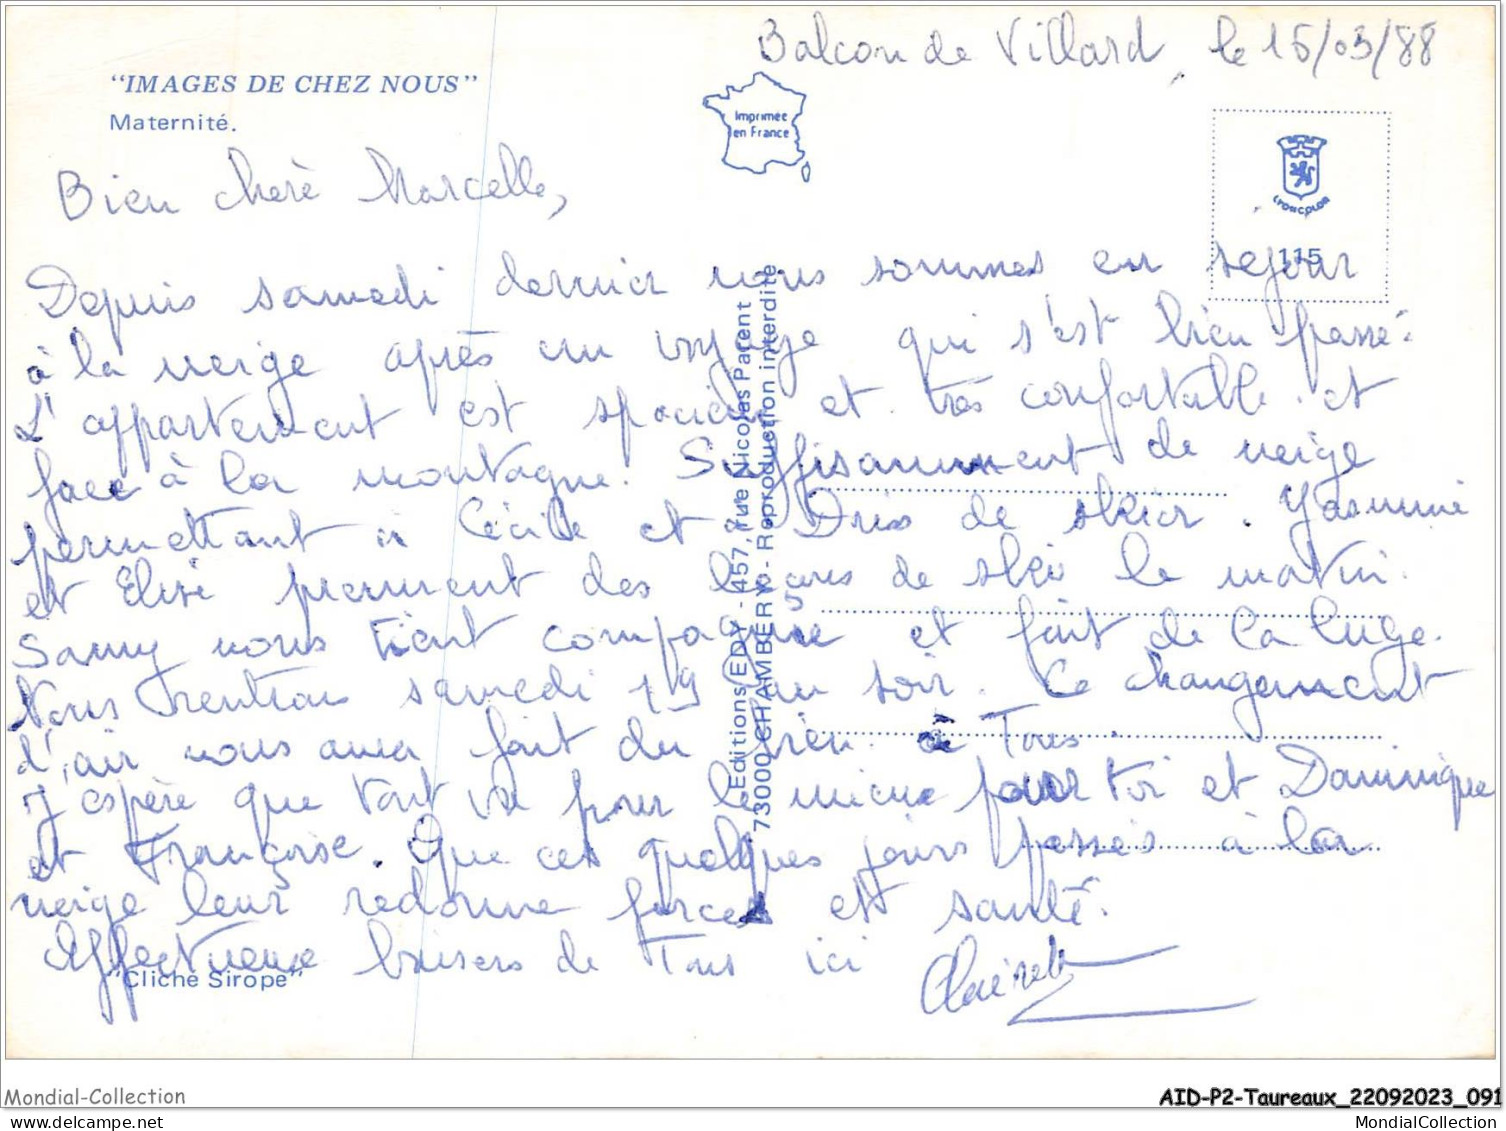 Balcon de Villard, le 15/03/88
"IMAGES DE CHEZ NOUS"
Maternité.
Imprimée
en France
LYONCOLOR
115
Bien chère Marcelle,
Depuis samedi dernier nous sommes en sejour
à la neige après un voyage qui s'est bien passé.
L'appartement est spacieux et très confortable et
face à la montagne. Suffisamment de neige
permettant à Cécile et Driss de skier. Yasmine
et Elise prennent des leçons de ski le matin.
Samy nous tient compagnie et fait de la luge.
Nous rentrons samedi 19 au soir. Ce changement
d'air nous aura fait du bien à Tous.
J'espère que tout va pour le mieux pour toi et Dominique
et Françoise. Que ces quelques jours passés à la
neige leur redonne forces et santé.
Affectueuse baisers de Tous ici
"Cliché Sirope"
Editions EDY - 457, rue Nicolas Parent
73000 CHAMBERY - Reproduction interdite
Mondial-Collection
AID-P2-Taureaux_22092023_091
MondialCollection